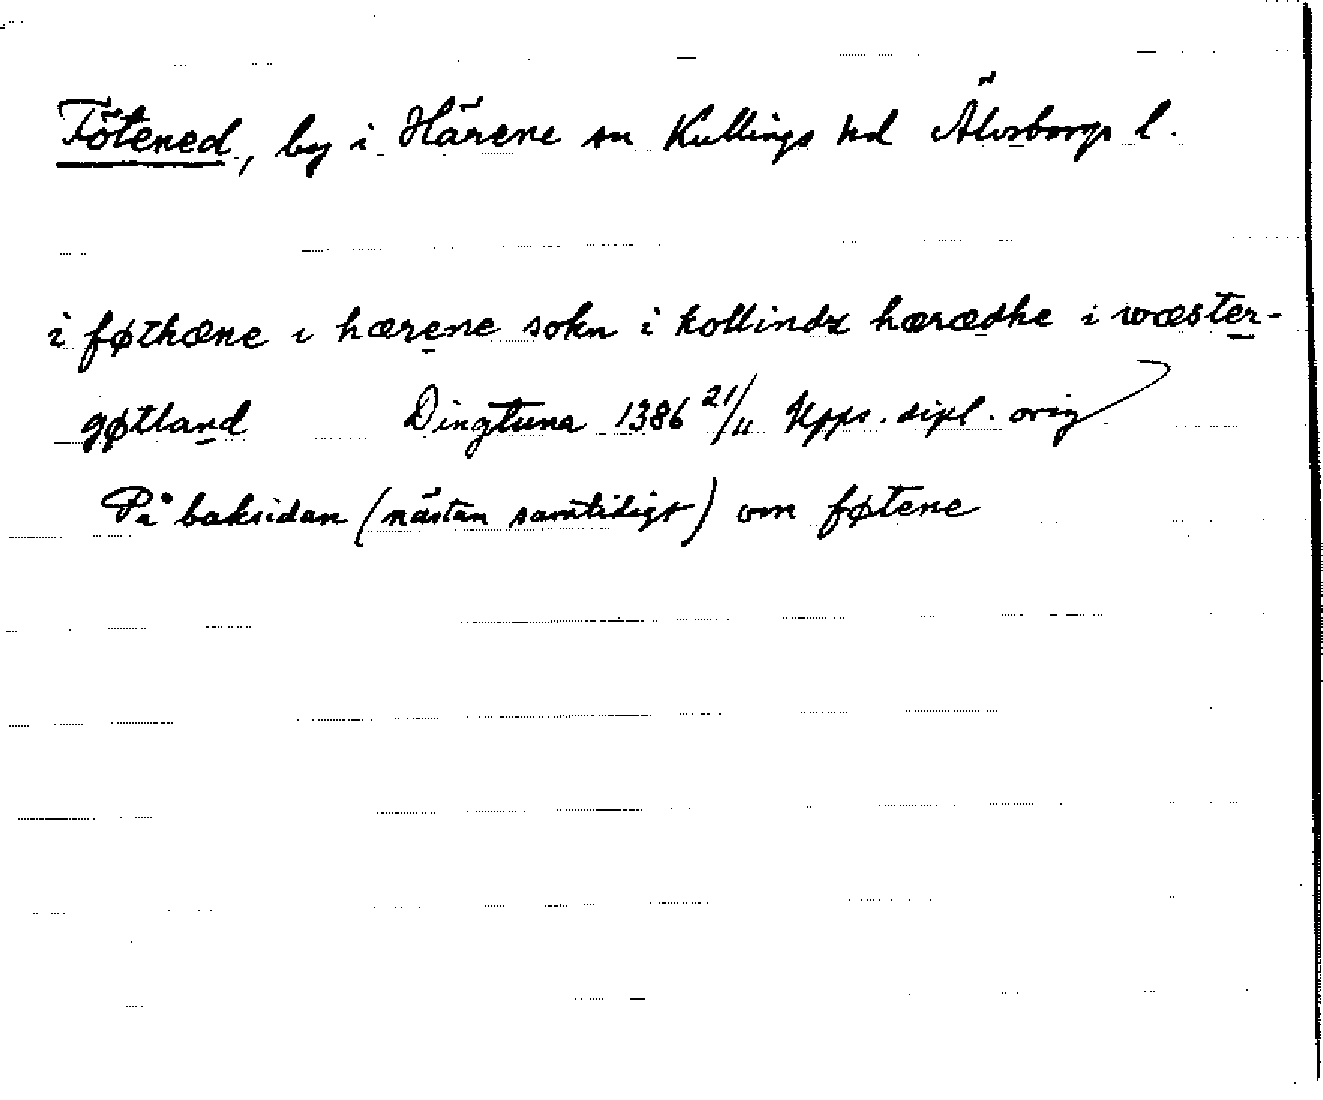 Fötened, by i Härene sn Kullings hd Älvsborgs l.
i føthæne i hærene sokn i kollindz hærædhe i wæster-
gøtland Dingtuna 1386 21/11 Upps. dipl. orig
På baksidan (nästan samtidigt) om føtene